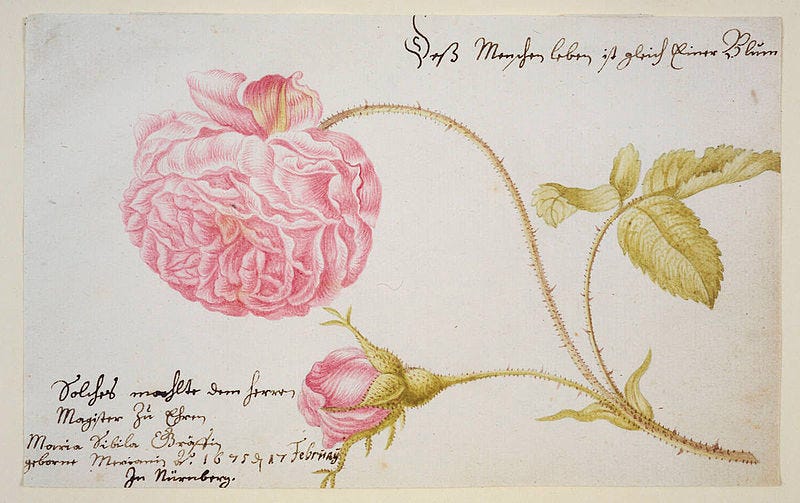 Deß Menschen leben ist gleich Einer Blum
Solches mahlte dem herren
Magister Zu Ehren
Maria Sibila Gräffin
geborne Merianin A. 1675 d 17 February
In Nürnberg.